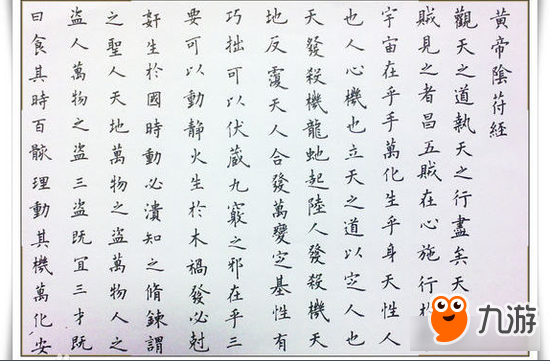 黄帝陰苻經
觀天之道執天之行盡矣天
賊見之者昌五賊在心施行
宇宙在乎手萬化生乎身天性人
也人心機也立天之道以定人也
天發殺機龍虵起陸人發殺機天
地反覆天人合發萬變定基性有
巧拙可以伏藏九竅之邪在乎三
要可以動静火生於木禍發必尅
奸生於國時動必潰知之脩鍊謂
之聖人天地萬物之盗萬物人之
盗人萬物之盗三盗既冝三才既
曰食其時百骸理動其機萬化安
九游